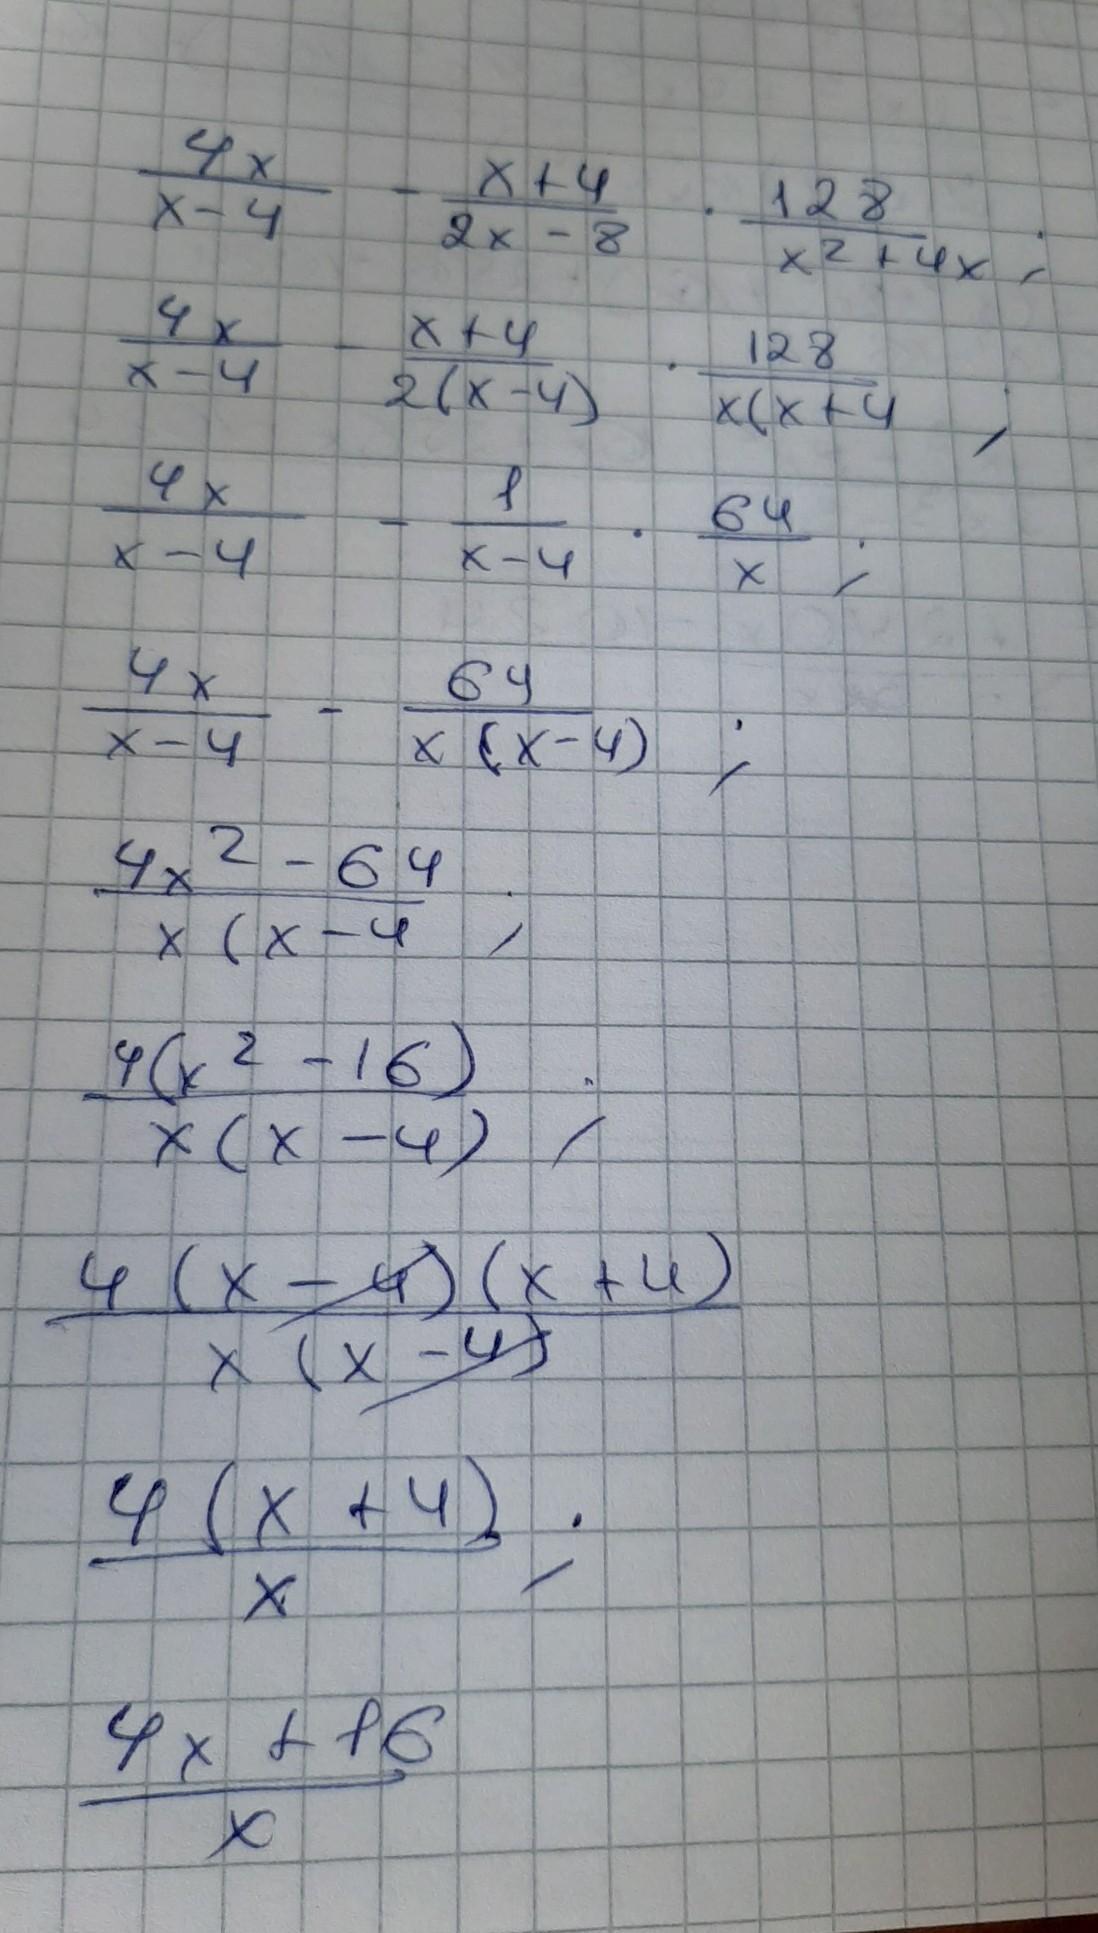 4x/(x-4) - (x+4)/(2x-8) · 128/(x²+4x);
4x/(x-4) - (x+4)/(2(x-4)) · 128/(x(x+4;
4x/(x-4) - 1/(x-4) · 64/x;
4x/(x-4) - 64/(x(x-4));
(4x²-64)/(x(x-4;
4(x²-16)/(x(x-4));
4(x-4)(x+4)/(x(x-4))
4(x+4)/x;
(4x+16)/x